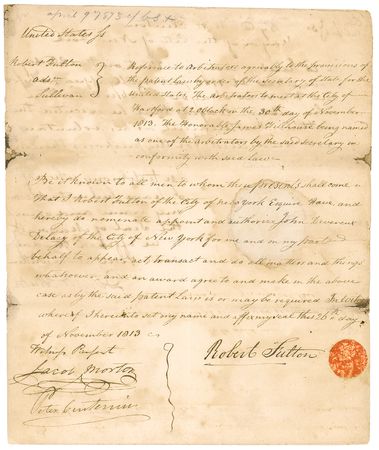 United States ss
Robert Fulton
ads
Sullivan
Reference to Arbitrators agreeably to the provisions of
the patent law by order of the Secretary of State for the
United States. The arbitrators to meet at the City of
Hartford at 2 Oclock on the 30th day of November
1813. The Honorable James Hillhouse being named
as one of the arbitrators by the said Secretary in
conformity with said Law
Be it known to all men to whom these presents shall come
that I Robert Fulton of the City of New York Esquire Have and
hereby do nominate appoint and authorize John Devereux
Delacy of the City of New York for me and on my part
behalf to appear, act, transact and do all matters and things
whatsoever, and an award agree to and make in the above
case as by the said patent Law is or may be required In witness
whereof I hereunto set my name and affix my seal this 26th day
of November 1813
Witness Present
Jacob Morton
Robert Fulton
Peter